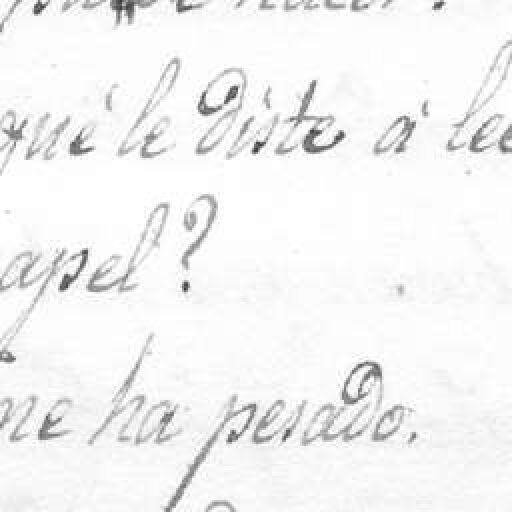 qué le diste á lee
apel?
me ha pesado.